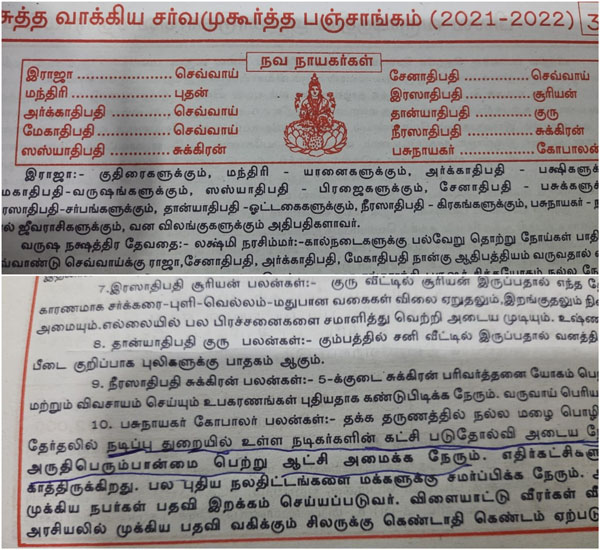 சுத்த வாக்கிய சர்வமுகூர்த்த பஞ்சாங்கம் (2021-2022) 3
நவ நாயகர்கள்
இராஜா ................ செவ்வாய்
மந்திரி ................ புதன்
அர்க்காதிபதி ........ செவ்வாய்
மேகாதிபதி .......... செவ்வாய்
ஸஸ்யாதிபதி ....... சுக்கிரன்
சேனாதிபதி ........ செவ்வாய்
இரஸாதிபதி ....... சூரியன்
தான்யாதிபதி ...... குரு
நீரஸாதிபதி ....... சுக்கிரன்
பசுநாயகர் ......... கோபாலன்
இராஜா:- குதிரைகளுக்கும், மந்திரி - யானைகளுக்கும், அர்க்காதிபதி - பக்ஷிகளு
மேகாதிபதி-வருஷங்களுக்கும், ஸஸ்யாதிபதி - பிரஜைகளுக்கும், சேனாதிபதி - பசுக்களுக்
ரஸாதிபதி-சர்பங்களுக்கும், தான்யாதிபதி -ஒட்டகைகளுக்கும், நீரஸாதிபதி - கிரகங்களுக்கும், பசுநாயகர் -
ல் ஜீவராசிகளுக்கும், வன விலங்குகளுக்கும் அதிபதிகளாவர்.
வருஷ நக்ஷத்திர தேவதை:- லக்ஷ்மி நரசிம்மர்:-கால்நடைகளுக்கு பல்வேறு தொற்று நோய்கள் பாதி
வ்வாண்டு செவ்வாய்க்கு ராஜா,சேனாதிபதி, அர்க்காதிபதி, மேகாதிபதி நான்கு ஆதிபத்தியம் வருவதால்
7.இரஸாதிபதி சூரியன் பலன்கள்:- குரு வீட்டில் சூரியன் இருப்பதால் எந்த
காரணமாக சர்க்கரை-புளி-வெல்லம்-மதுபான வகைகள் விலை ஏறுதலும்,இறங்குதலும்
அமையும்.எல்லையில் பல பிரச்சனைகளை சமாளித்து வெற்றி அடைய முடியும். உஷ்ண
8. தான்யாதிபதி குரு பலன்கள்:- கும்பத்தில் சனி வீட்டில் இருப்பதால் வனத்தி
பீடை குறிப்பாக புலிகளுக்கு பாதகம் ஆகும்.
9. நீரஸாதிபதி சுக்கிரன் பலன்கள்:- 5-க்குடை சுக்கிரன் பரிவர்த்தனை யோகம் பெ
மற்றும் விவசாயம் செய்யும் உபகரணங்கள் புதியதாக கண்டுபிடிக்க நேரும். வருவாய் பெரிய
10. பசுநாயகர் கோபாலர் பலன்கள்:- தக்க தருணத்தில் நல்ல மழை பொழி
தேர்தலில் நடிப்பு துறையில் உள்ள நடிகர்களின் கட்சி படுதோல்வி அடைய நே
அருதிபெரும்பான்மை பெற்று ஆட்சி அமைக்க நேரும். எதிர்கட்சிகளு
காத்திருக்கிறது. பல புதிய நலதிட்டங்களை மக்களுக்கு சமர்ப்பிக்க நேரும்.
முக்கிய நபர்கள் பதவி இறக்கம் செய்யப்படுவர். விளையாட்டு வீரர்கள்
அரசியலில் முக்கிய பதவி வகிக்கும் சிலருக்கு கெண்டாதி கெண்டம் ஏற்படு